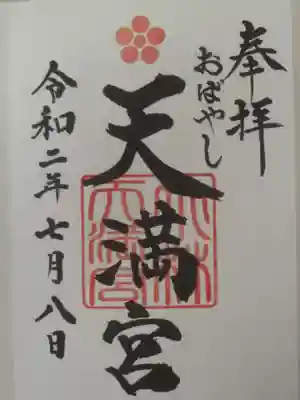 奉拝
おばやし
天満宮
令和二年七月八日